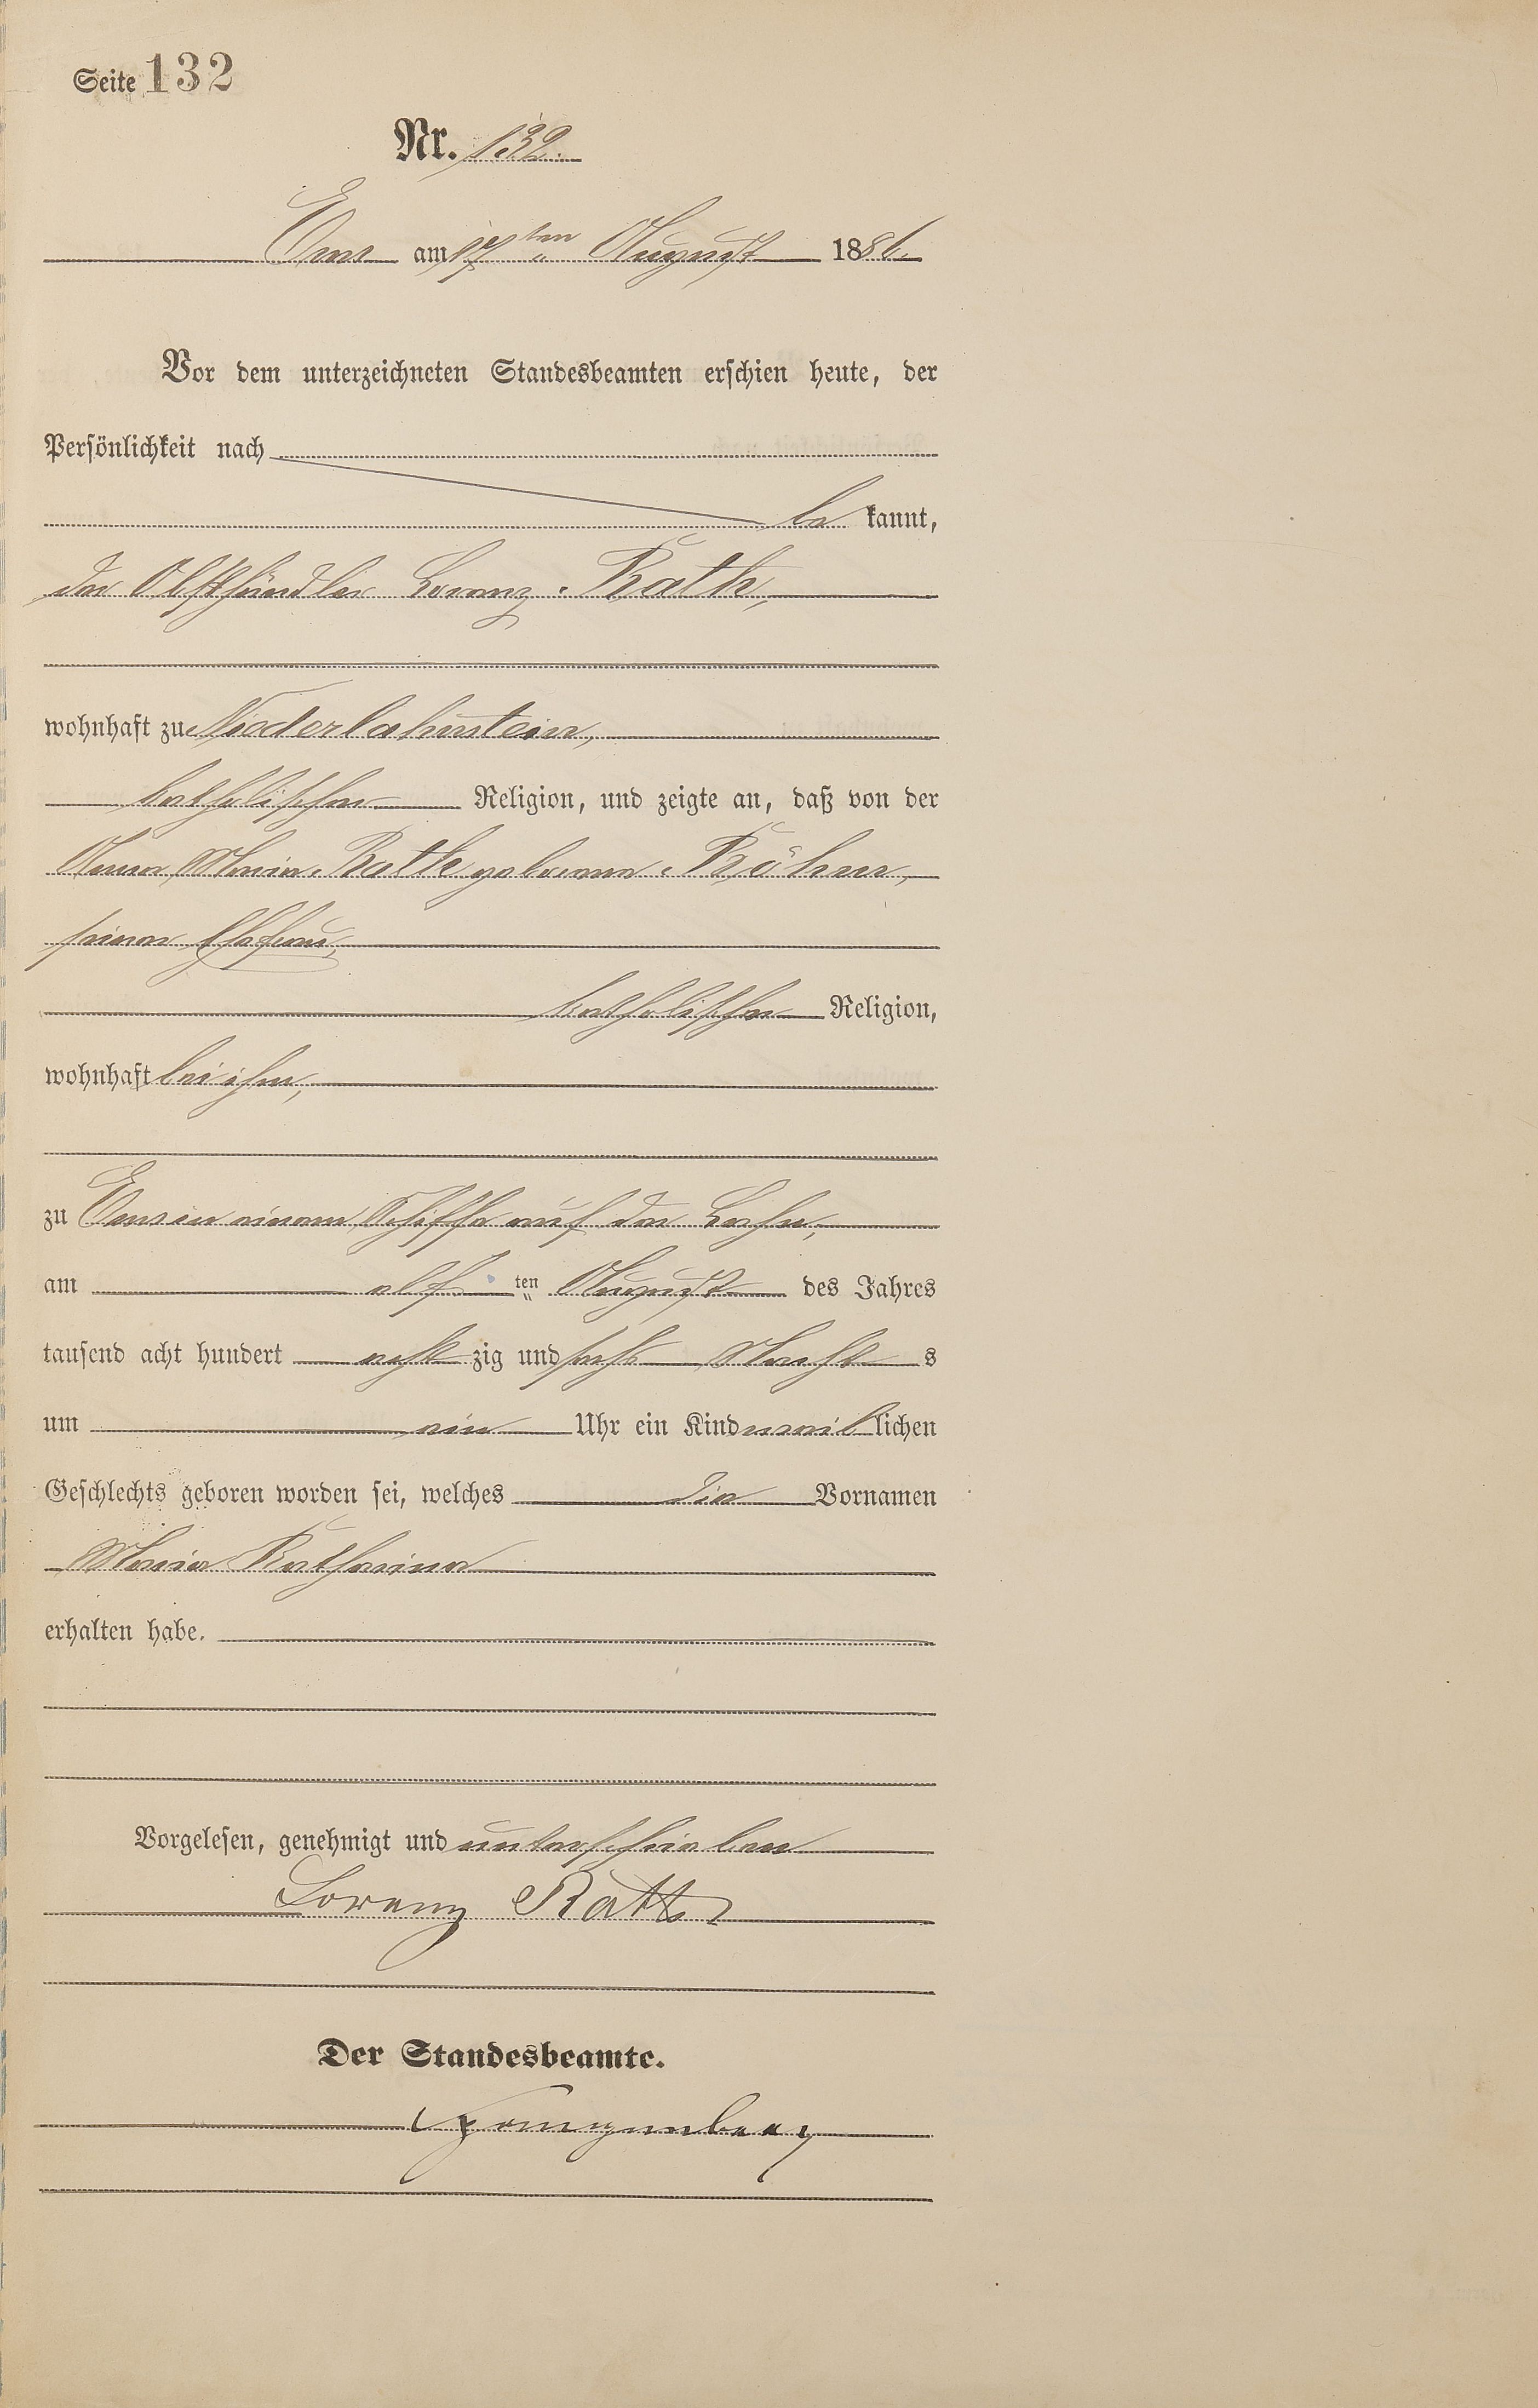 Seite 132
Nr. 132.
Ems am 17ten August 1886.
Vor dem unterzeichneten Standesbeamten erschien heute, der
Persönlichkeit nach
be kannt,
der Obsthändler Lorenz Rath,
wohnhaft zu Niederlahnstein,
katholischer Religion, und zeigte an, daß von der
Anna Maria Rath geborene Böhm,
seiner Ehefrau,
katholischer Religion,
wohnhaft bei ihm,
zu Ems in einem Schiffe auf der Lahn,
am elf ten August des Jahres
tausend acht hundert acht zig und sechs Nacht s
um ein Uhr ein Kind weib lichen
Geschlechts geboren worden sei, welches die Vornamen
Maria Katharina
erhalten habe.
Vorgelesen, genehmigt und unterschrieben
Lorenz Rath
Der Standesbeamte.